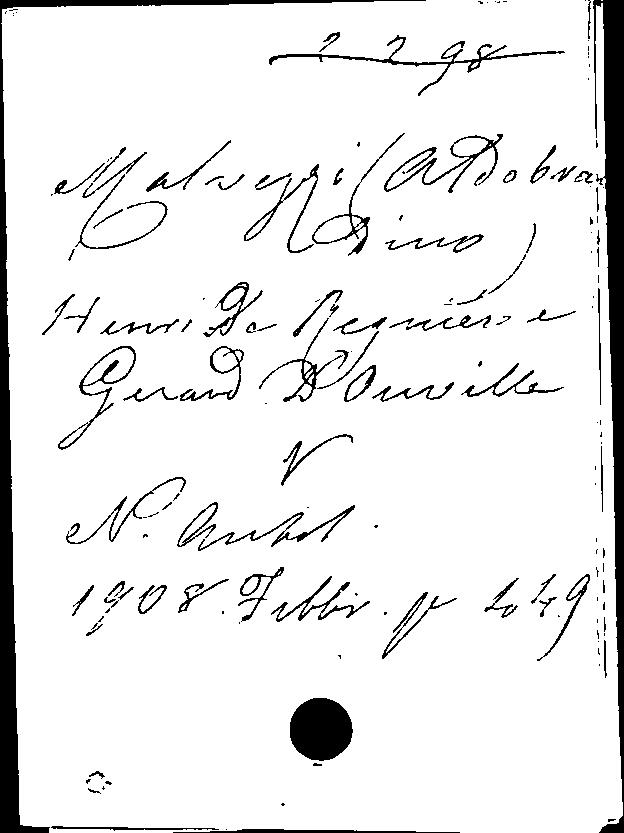 2 2 98
Malvezzi (Aldobran
dino)
Henri De Regnier e
Gerard D'Ouville
V
N. Antol.
1908. Febbr. p 449